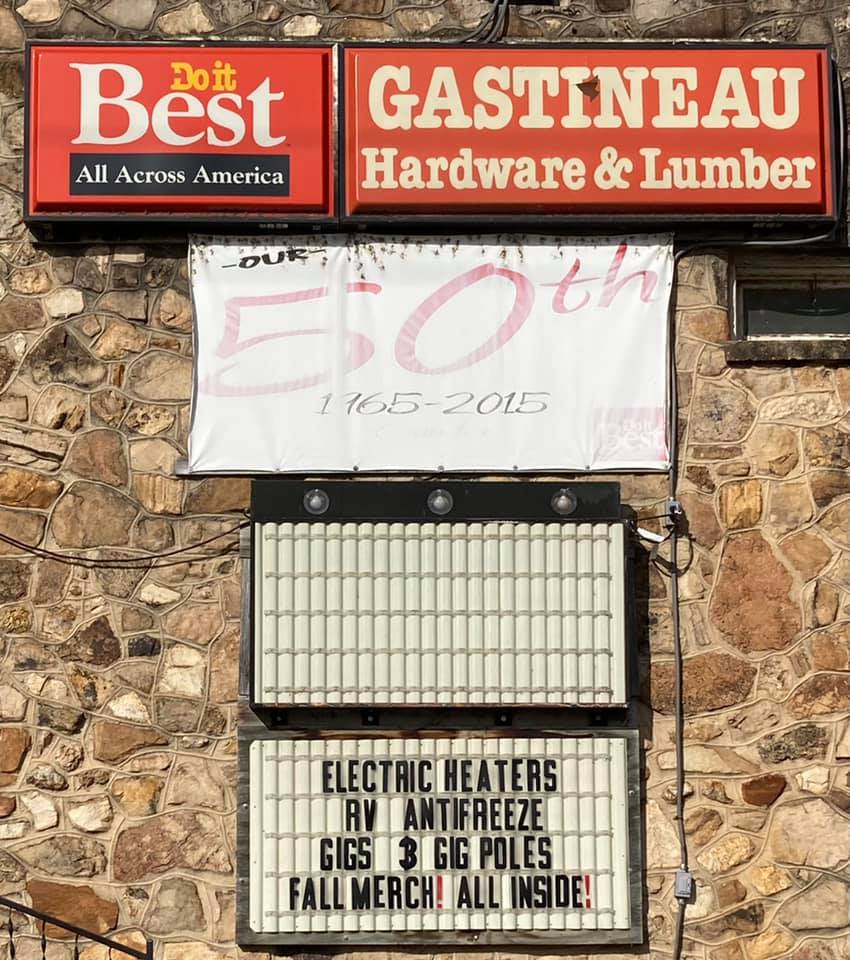 Do it
Best
All Across America
GASTINEAU
Hardware & Lumber
-OUR-
50th
1965-2015
Do it
Best
ELECTRIC HEATERS
RV ANTIFREEZE
GIGS & GIG POLES
FALL MERCH! ALL INSIDE!